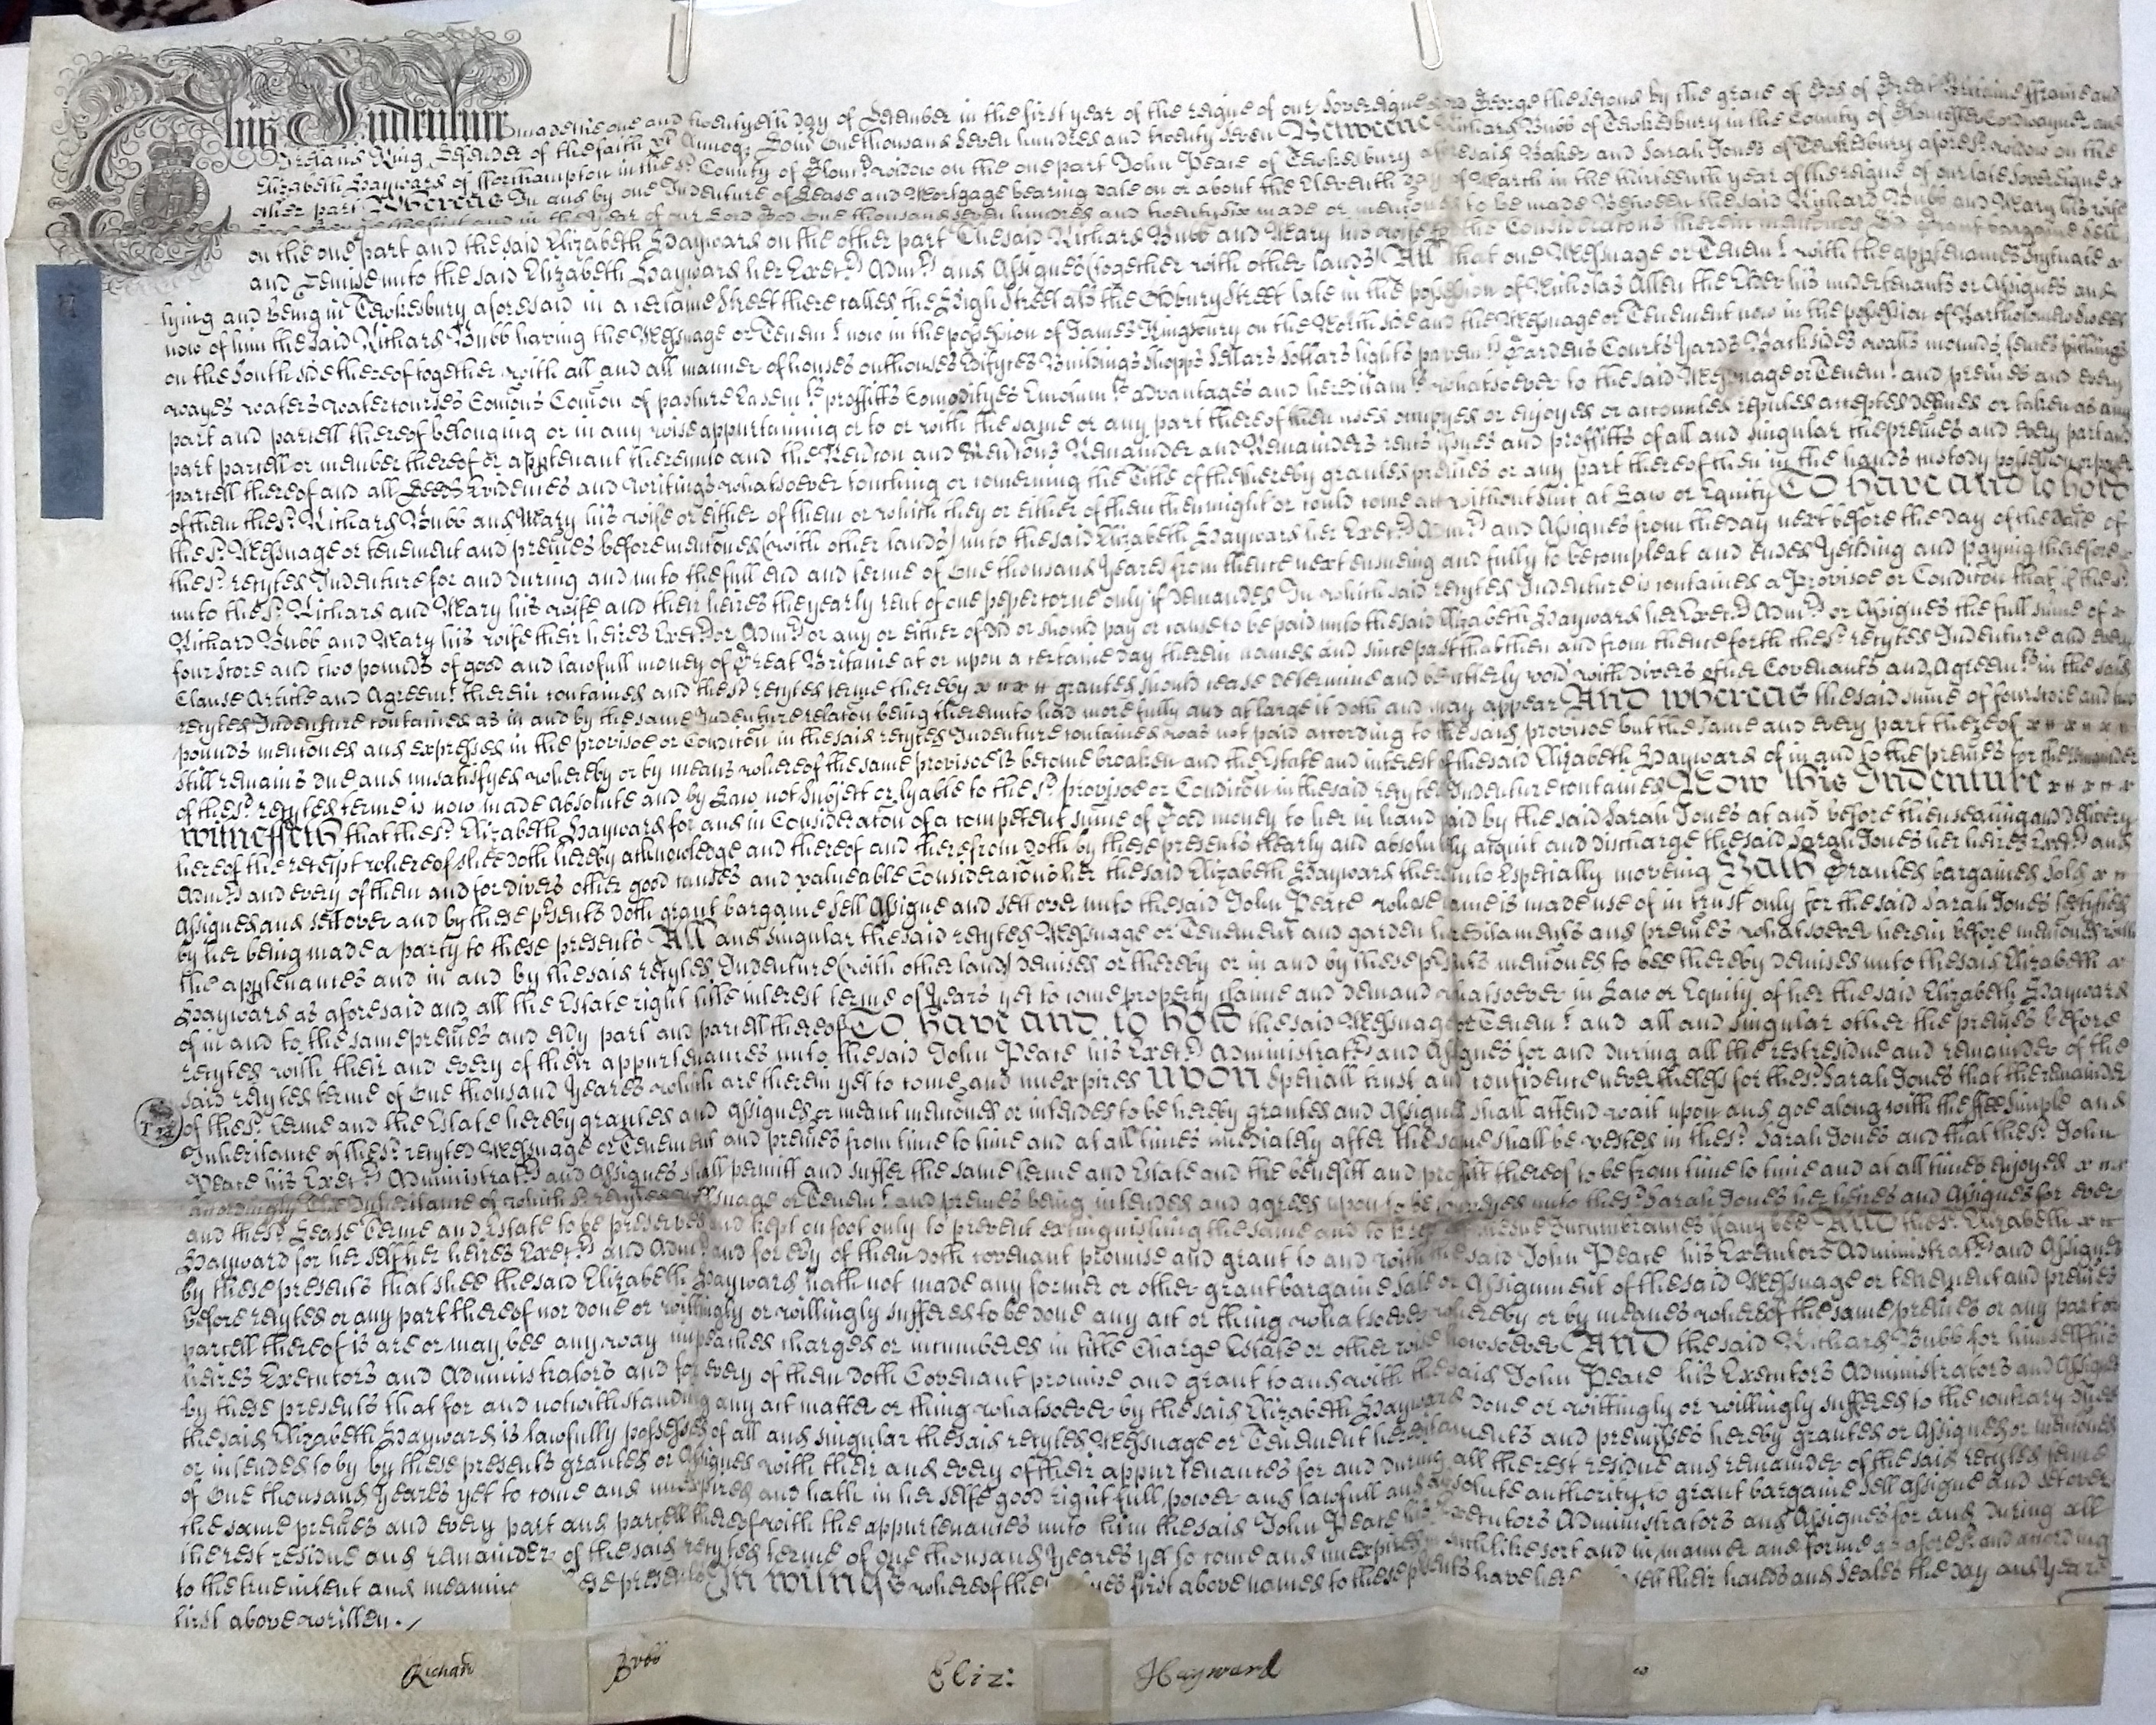 This Indenture made the one and twentyeth day of December in the first year of the reigne of our Sovereigne Lord George the second by the grace of God of Great Britaine ffrance and
Ireland King Defender of the faith &c Annoq; Dom̃ One thousand seven hundred and twenty seven Betweene Richard Bubb of Tewkesbury in the County of Gloucester Cordwayner and
Elizabeth Hayward of Northampton in the sd. County of Glouc̃ widow on the one part John Peace of Tewkesbury aforesaid Baker and Sarah Jones of Tewkesbury aforesd. widow on the
other part Whereas In and by one Indenture of Lease and Mortgage bearing date on or about the Eleventh day of March in the thirteenth year of the reigne of our late sovereigne
and in the Year of our Lord God One thousand seven hundred and twenty six made or menc̃oned to be made Between the said Richard Bubb and Mary his wife
on the one part and the said Elizabeth Hayward on the other part The said Richard Bubb and Mary his wife for the Considerac̃ons therein menc̃oned Did Grant bargaine sell
and Demise unto the said Elizabeth Hayward her Execrs. Admrs. and Assignes (together with other lands) All that one Messuage or Tenemt. with the appteñances scytuate
lying and being in Tewkesbury aforesaid in a certaine Street there called the High Street als the Oldbury Street late in the possession of Nicholas Allen the Elder his undertenants or Assignes and
now of him the said Richard Bubb having the Messuage or Tenemt. now in the possession of James Kingsbury on the North side and the Messuage or Tenement now in the possession of Bartholomew
on the South side thereof together with all and all manner of houses outhouses Edifyces Buildings shopps Sellars sollars lights pavemts. Gardens Courts Yards Backsides walls mounds fences pitchings
wayes waters watercourses Com̃ons Com̃on of pasture Easemts. proffitts com̃odityes Emolumts. advantages and hereditamts. whatsoever to the said Messuage or Tenemt. and prem̃es and every
part and parcell thereof belonging or in any wise appurtaining or to or with the same or any part thereof then used occupyed or enjoyed or accounted reputed accepted deemed or taken as any
part parcell or member thereof or appteñant thereunto and the Revc̃on and Revc̃ons Remainder and Remainders rents issues and proffitts of all and singular the prem̃es and every part and
parcell thereof and all Deeds Evidences and writings whatsoever touching or concerning the Title of the thereby granted prem̃es or any part thereof then in the hands custody possession or power
of them the sd. Richard Bubb and Mary his wife or either of them or which they or either of them then might or could come att without suit at Law or Equity To have and to hold
the sd. Messuage or tenement and prem̃es before menc̃oned (with other lands) unto the said Elizabeth Hayward her Execrs. Admrs. and Assignes from the day next before the day of the date of
the sd. recyted Indenture for and during and unto the full end and terme of One thousand Yeares from thence next ensueing and fully to be compleat and ended Yeilding and paying therefore
unto the sd. Richard and Mary his wife and their heires the yearly rent of one pepercorne only if demanded In which said recyted Indenture is contained a Provisoe or Condic̃on that if the sd.
Richard Bubb and Mary his wife their heires Execrs. or Admrs. or any or either of did or should pay or cause to be paid unto the said Elizabeth Hayward her Execrs. Admrs. or Assignes the full sum̃e of
fourscore and two pounds of good and lawfull money of Great Britaine at or upon a certaine day therein named and since past that then and from thenceforth the sd. recyted Indenture and every
Clause Article and Agreemt. therein contained and the sd. recyted terme thereby granted should cease determine and be utterly void with divers other Covenants and Agreemts. in the said
recyted Indenture contained as in and by the same Indenture relac̃on being thereunto had more fully and at large it doth and may appear And whereas the said sum̃e of fourscore and two
pounds menc̃oned and expressed in the provisoe or Condic̃on in the said recyted Indenture contained was not paid according to the said provisoe but the same and every part thereof
still remains due and unsatisfyed whereby or by means whereof the same provisoe is become broaken and the Estate and interest of the said Elizabeth Hayward of in and to the prem̃es for the remainder
of the sd. recyted terme is now made absolute and by Law not subject or lyable to the sd. provisoe or Condic̃on in the said recyted Indenture contained Now this Indenture
witnesseth that the sd. Elizabeth Hayward for and in Considerac̃on of a competent sum̃e of Good money to her in hand paid by the said Sarah Jones at and before the ensealing and delivery
hereof the receipt whereof shee doth hereby acknowledge and thereof and therefrom doth by these presents clearly and absolutely acquit and discharge the said Sarah Jones her heires Execrs. and
Admrs. and every of them and for divers other good causes and valueable Considerac̃ons her the said Elizabeth Hayward thereunto Especially moveing Hath Granted bargained sold
Assigned and sett over and by these p̃sents doth grant bargaine sell Assigne and sett over unto the said John Peace whose name is made use of in trust only for the said Sarah Jones testified
by her being made a party to these presents All and singular the said recyted Messuage or Tenement and garden hereditaments and prem̃es whatsoever herein before menc̃oned with
the appteñances and in and by the said recyted Indenture (with other lands) demised or thereby or in and by these p̃sents menc̃oned to bee thereby demised unto the said Elizabeth
Hayward as aforesaid and all the Estate right title interest terme of Years yet to come property claime and demand whatsoever in Law or Equity of her the said Elizabeth Hayward
of in and to the same prem̃es and ev̓y part and parcell thereof To have and to hold the said Messuage or Tenemt. and all and singular other the prem̃es before
recyted with their and every of their appurtenances unto the said John Peace his Execrs. Administratrs. and Assignes for and during all the rest residue and remainder of the
said recyted terme of One thousand Yeares which are therein yet to come and unexpired Upon Speciall trust and confidence nevertheless for the sd. Sarah Jones that the remainder
of the sd. terme and the Estate hereby granted and assigned or meant menc̃oned or intended to be hereby granted and Assigned shall attend wait upon and goe along with the ffee Simple and
Inheritance of the sd. recyted Messuage or Tenement and prem̃es from time to time and at all times im̃ediately after the same shall be vested in the sd. Sarah Jones and that the sd. John
Peace his Execrs. Administratrs. and Assignes shall permitt and suffer the same terme and Estate and the benefitt and proffitt thereof to be from time to time and at all times enjoyed
accordingly The Inheritance of which sd. recyted Messuage or Tenemt. and prem̃es being intended and agreed upon to be conveyed unto the sd. Sarah Jones her heires and Assignes for ever
and the sd. Lease Terme and Estate to be preserved and kept on foot only to prevent extinguishing the same and to mesne Incumbrances if any bee And the sd. Elizabeth
Hayward for her selfe her heires Execrs. and Admrs. and for ev̓y of them doth covenant promise and grant to and with the said John Peace his Executors Administratrs. and Assignes
by these presents that shee the said Elizabeth Hayward hath not made any former or other grant bargaine sale or Assignment of the said Messuage or tenement and prem̃es
before recyted or any part thereof nor done or wittingly or willingly suffered to be done any act or thing whatsoever whereby or by meanes whereof the same prem̃es or any part or
parcell thereof is are or may bee any way impeached charged or incumbered in title Charge Estate or otherwise howsoever And the said Richard Bubb for himselfe his
heires Executors and Administrators and for every of them doth Covenant promise and grant to and with the said John Peace his Executors Administrators and Assignes
by these presents that for and notwithstanding any act matter or thing whatsoever by the said Elizabeth Hayward done or wittingly or willingly suffered to the contrary shee
the said Elizabeth Hayward is lawfully possessed of all and singular the said recyted Messuage or Tenement hereditaments and premisses hereby granted or Assigned or menc̃oned
or intended to by by these presents granted or Assigned with their and every of their appurtenances for and during all the rest residue and remainder of the said recyted terme
of One thousand Yeares yet to come and unexpired and hath in her selfe good right full power and lawfull and absolute authority to grant bargaine sell assigne and set over
the same prem̃es and every part and parcell thereof with the appurtenances unto him the said John Peace his Executors Administrators and Assignes for and during all
the rest residue and remainder of the said recyted terme of One thousand Yeares yet to come and unexpired in such like sort and in manner and forme as aforesd. and according
to the true intent and meaning these presents In witness whereof the first above named to these p̃sents have sett their hands and seales the day and Yeare
first above written.
Richard Bubb Eliz: Hayward